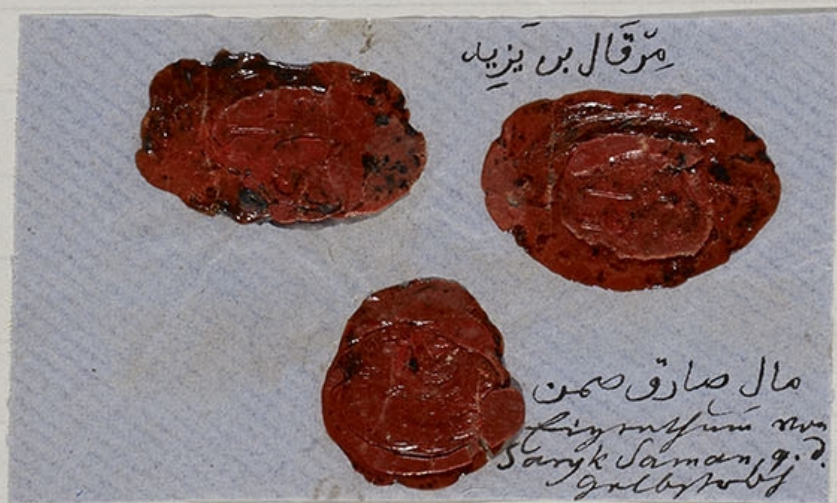 مِرْقَال بن يَزِيد
مال صارق صمن
Eigenthum von
Saryk Saman, q. d.
Gelbstroh